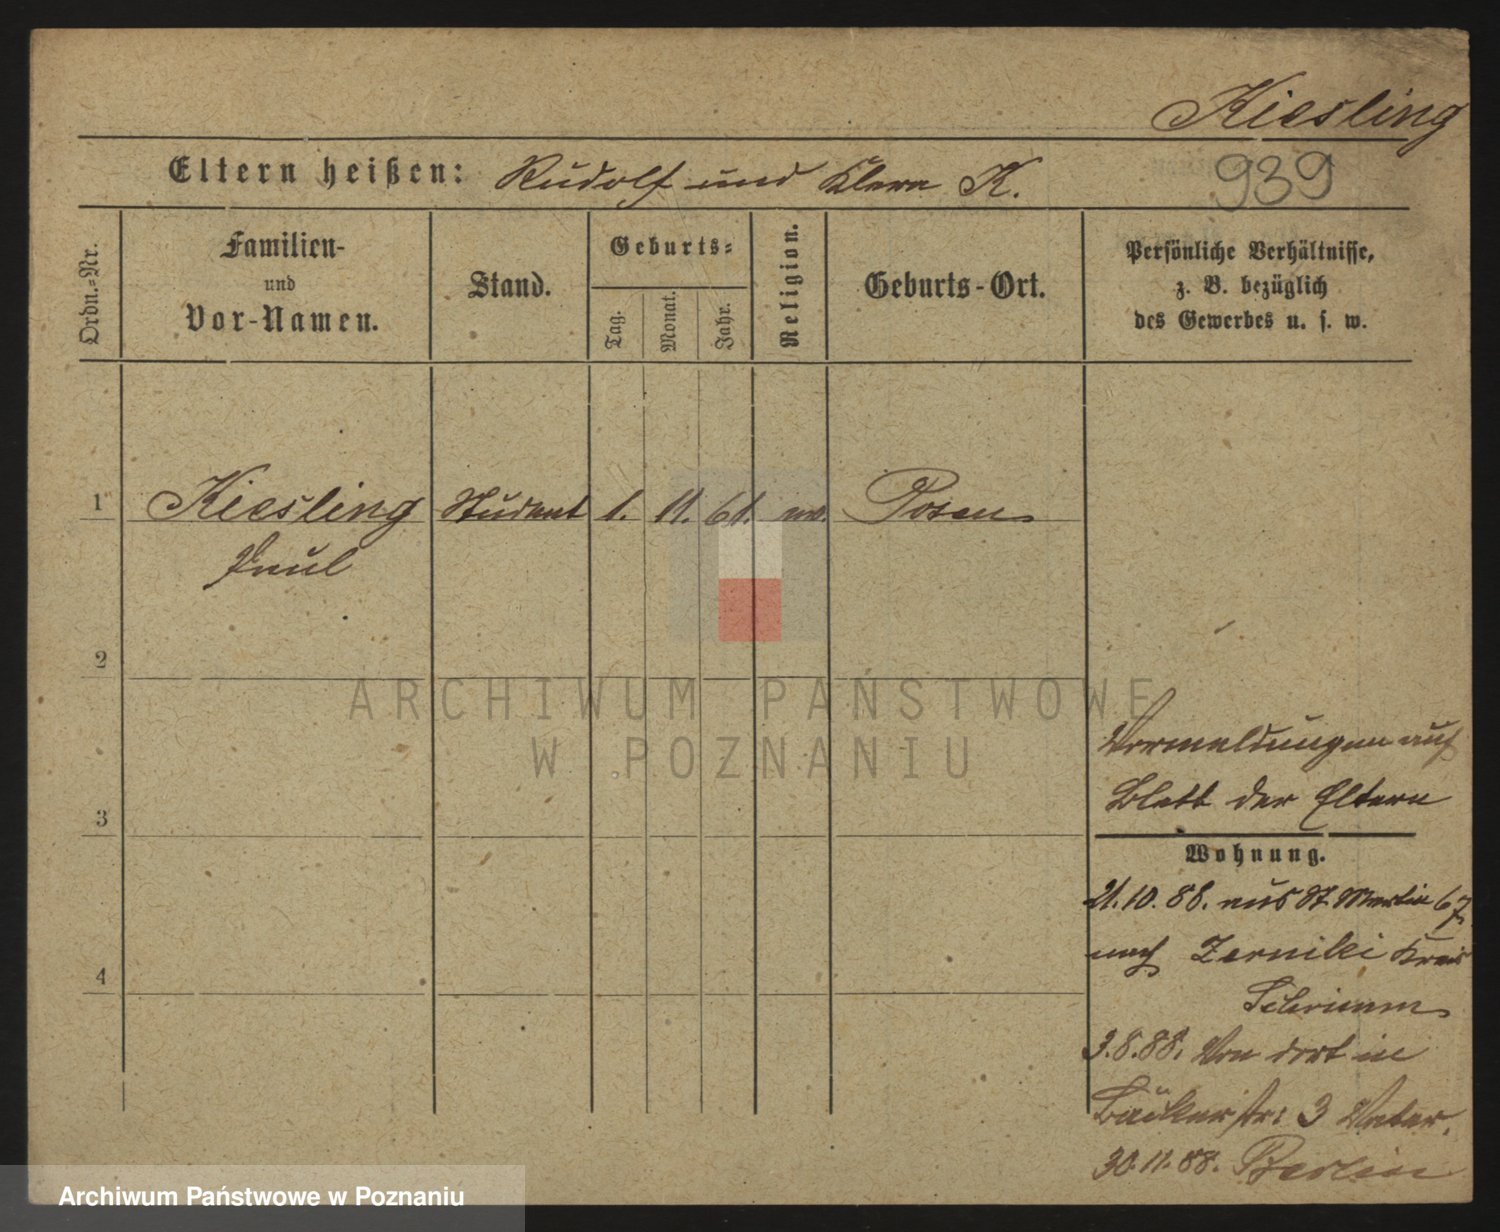 Kiesling
Eltern heißen: Rudolf und Klara K.
939
Ordn.-Nr.
Familien-
und
Vor-Namen.
Stand.
Geburts-
Tag.
Monat.
Jahr.
Religion.
Geburts-Ort.
Persönliche Verhältnisse,
z. B. bezüglich
des Gewerbes u. s. w.
1 Kiesling Student 1. 11. 61. Posen
Paul
2
ARCHIWUM PAŃSTWOWE
W POZNANIU
Vormeldungen auf
Blatt der Eltern
3
Wohnung.
21.10.88. aus St. Martin 67.
nach Zerniki Kreis
4
Schrimm
3.8.88. Von dort in
Bäckerstr: 3 Vater.
30.11.88. Berlin
Archiwum Państwowe w Poznaniu